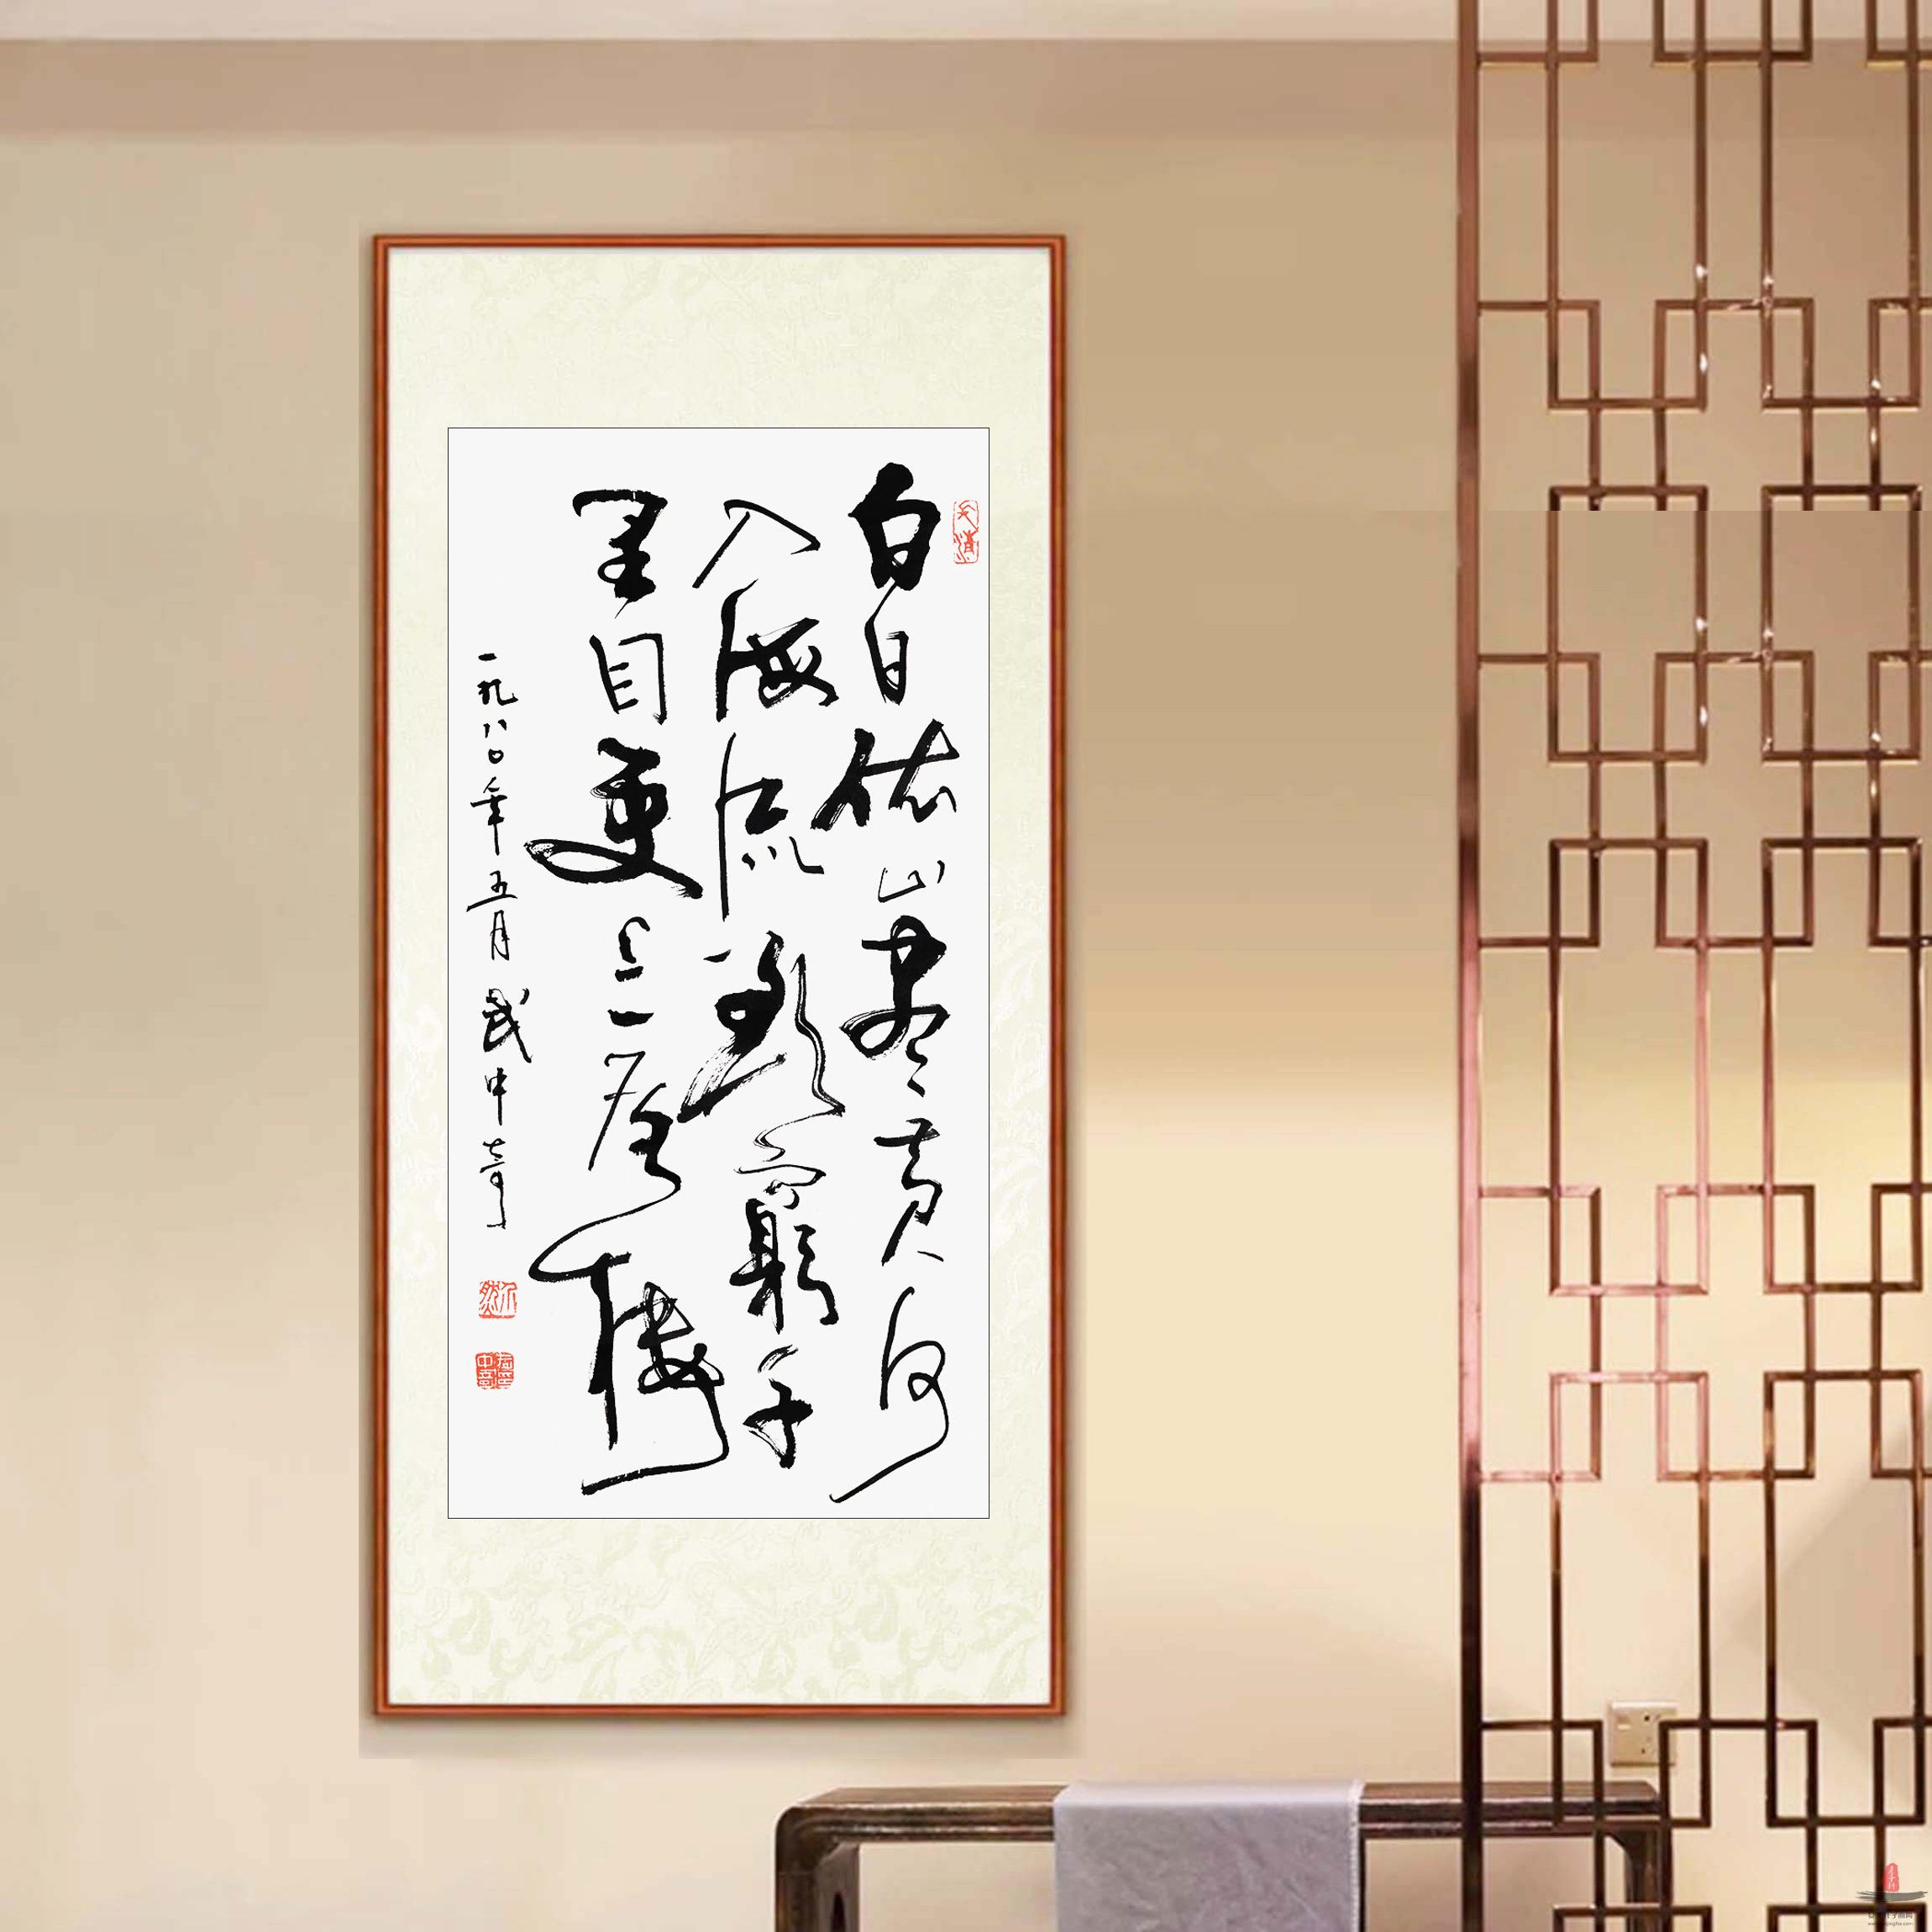 白日依山盡黄河
入海流欲窮千
里目更上一層樓
一九八〇年五月 武中奇